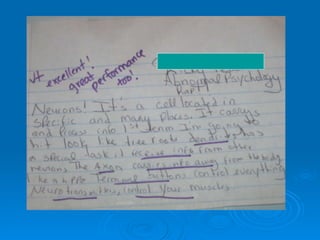 √+ excellent!
great performance
too!
Abnormal Psychology
Rap 1
Neurons! It's a cell located in
specific and many places. It carrys
and passes info 1st term I'm going to
hit look like tree roots dendrites has
a special task it receive info from other
neurons The Axon carries info away from the body
like a pipe Terminal buttons control everything
Neurotransmitters, control your muscles.